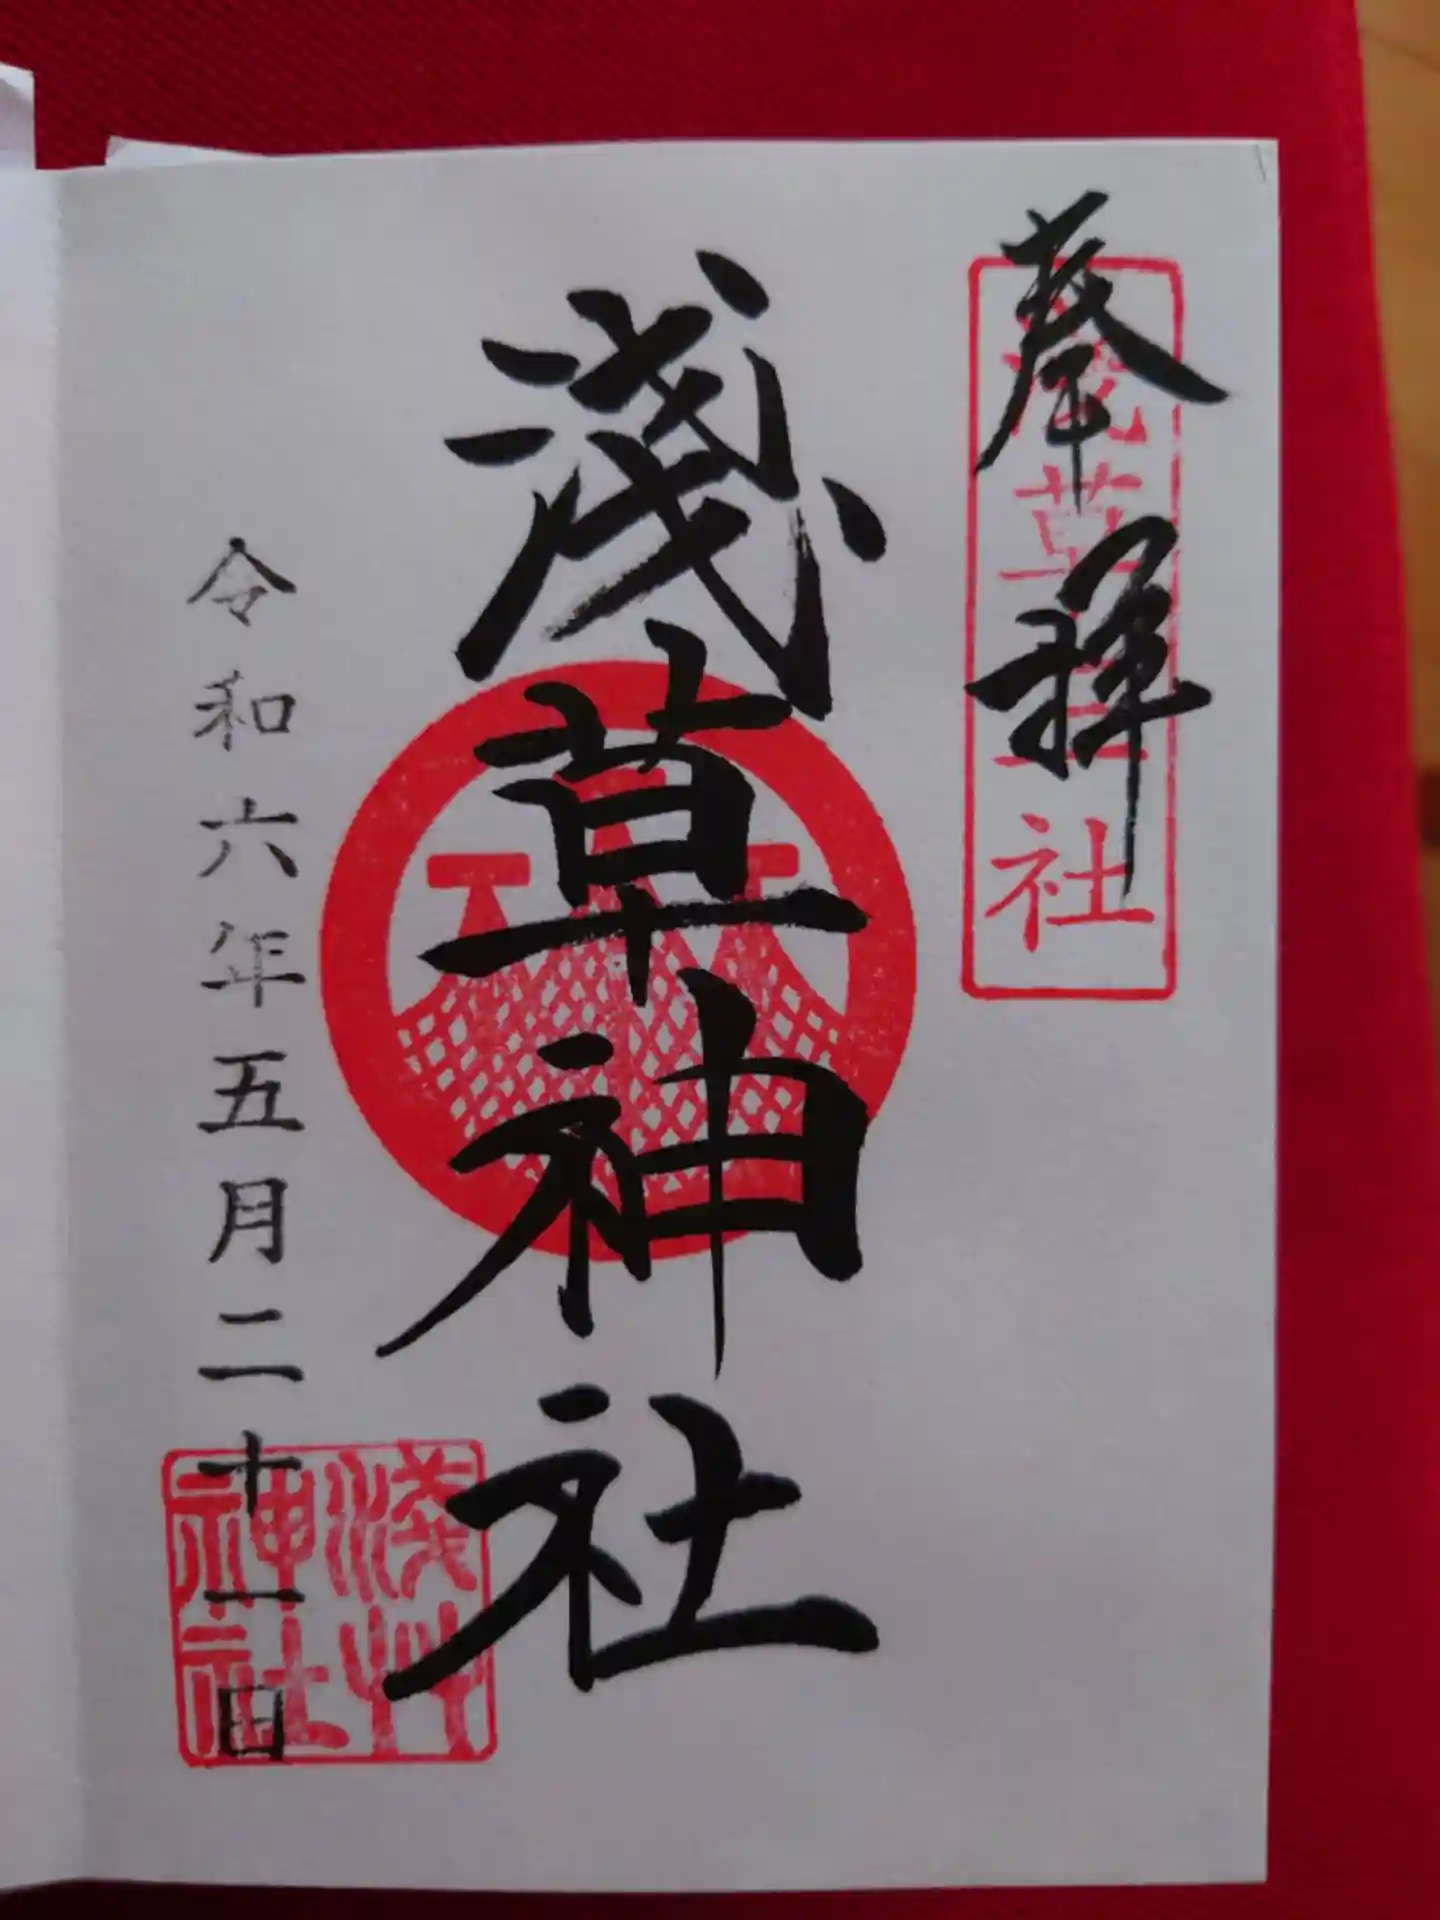 奉拝
浅草三社
淺草神社
令和六年五月二十一日
淺草
神社